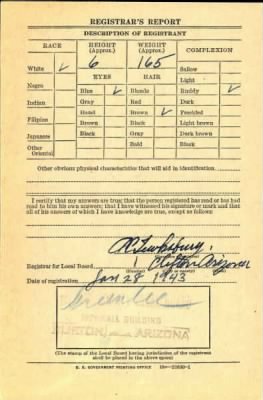 REGISTRAR'S REPORT
DESCRIPTION OF REGISTRANT
RACE HEIGHT (Approx.) WEIGHT (Approx.) COMPLEXION
White ✓ 6 165 Sallow
Light
EYES HAIR
Negro Blue ✓ Blonde Ruddy ✓
Gray Red Dark
Indian Hazel Brown ✓ Freckled
Filipino Brown Black Light brown
Japanese Black Gray Dark brown
Other Oriental Bald Black
Other obvious physical characteristics that will aid in identification
I certify that my answers are true; that the person registered has read or has had
read to him his own answers; that I have witnessed his signature or mark and that
all of his answers of which I have knowledge are true, except as follows:
Registrar for Local Board Clifton Arizona
(Number) (City or county)
Date of registration Jan 28 1943
Greenlee
BUILDING
CLIFTON ARIZONA
(The stamp of the Local Board having jurisdiction of the registrant
shall be placed in the above space)
U. S. GOVERNMENT PRINTING OFFICE